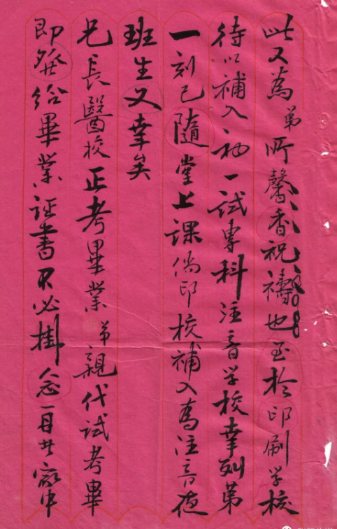 此又為弟所馨香祝禱也至於印刷学校
待以補入初一試專科注音学校幸列第
一刻已隨堂上課倘印校補入為注音夜
班生又幸矣
兄長醫校正考畢業弟親代試考畢
即發給畢業证書不必掛念一目廿家中